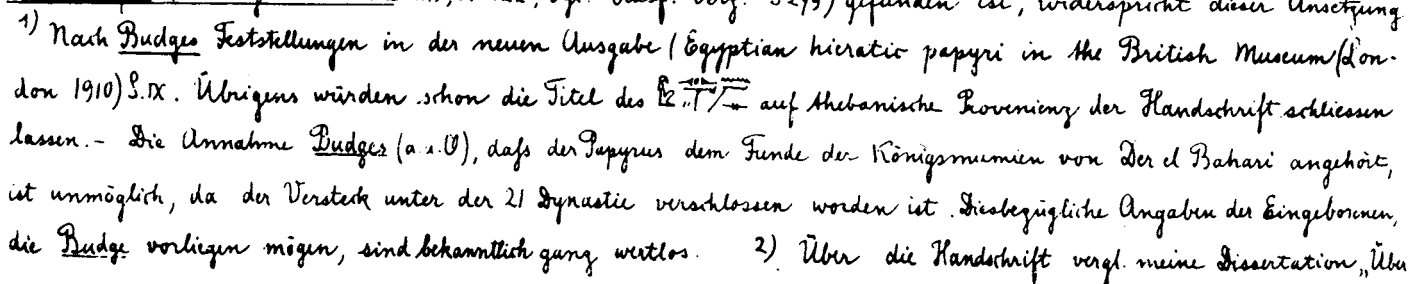 gefunden ist, widerspricht dieser Ansetzung
1) Nach Budges Feststellungen in der neuen Ausgabe (Egyptian hieratic papyri in the British Museum (Lon-
don 1910) S. IX. Übrigens würden schon die Titel des auf thebanische Provenienz der Handschrift schliessen
lassen. - Die Annahme Budges (a. a. O), dafs der Papyrus dem Funde der Königsmumien von Der el Bahari angehört,
ist unmöglich, da der Versteck unter der 21 Dynastie verschlossen worden ist. Diesbezügliche Angaben der Eingeborenen,
die Budge vorliegen mögen, sind bekanntlich ganz wertlos. 2) Über die Handschrift vergl. meine Dissertation „Über